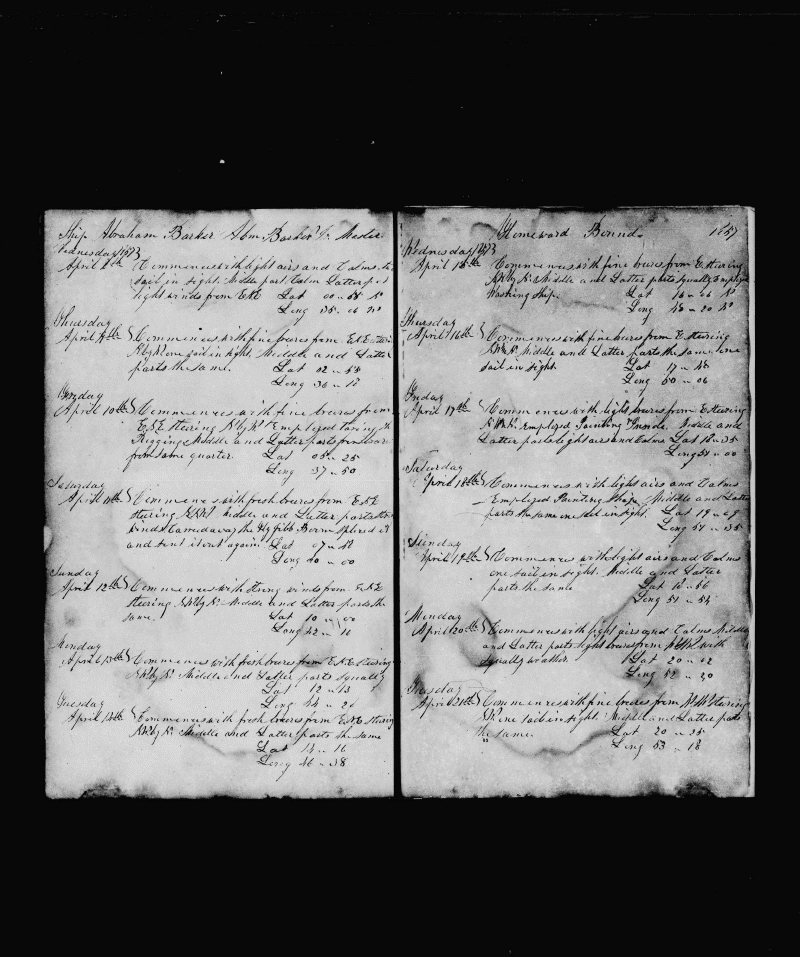 Ship Abraham Barker Abm Barker Jr Master
Wednesday 1873
April 8th Commences with light airs and Calms
sail in sight. Middle part Calm Latter part
light winds from ENE Lat 00 " 55 N
Long 35 " 06 W
Thursday
April 9th Commences with fine breeses from ESE steering
NW by N one sail in sight. Middle and Latter
parts the same. Lat 02 " 54
Long 36 " 18
Friday
April 10th Commences with fine breeses from
ESE steering NW by N Employed taring the
Rigging Middle and Latter parts
from same quarter. Lat 05 " 25
Long 37 " 50
Saturday
April 11th Commences with fresh breeses from ESE
steering NNW Middle and Latter parts strong
winds Carried away the Flying Jibb Boom Splised it
and sent it out again. Lat 07 " 48
Long 40 " 00
Sunday
April 12th Commences with strong winds from ENE
steering NW by N. Middle and Latter parts the
same. Lat 10 " 00
Long 42 " 10
Monday
April 13th Commences with fresh breeses from ENE steering
NW by N. Middle and Latter parts squally
Lat 12 " 13
Long 44 " 20
Tuesday
April 14th Commences with fresh breeses from ENE steering
NW by N. Middle and Latter parts the same
Lat 14 " 16
Long 46 " 38
Homeward Bound. 167
Wednesday 1873
April 15th Commences with fine breses from E steering
NW by N. Middle and Latter parts squally Employed
Washing ship. Lat 16 " 06 N
Long 48 " 20 W
Thursday
April 16th Commences with fine breses from E steering
NW by N. Middle and Latter parts the same One
sail in sight. Lat 17 " 48
Long 50 " 06
Friday
April 17th Commences with light breses from E steering
NW by N. Employed Painting Inside. Middle and
Latter parts light airs and Calms Lat 18 " 35
Long 51 " 00
Saturday
April 18th Commences with light airs and Calms
Employed Painting Ship Middle and Latter
parts the same one sail in sight. Lat 19 " 09
Long 51 " 35
Sunday
April 19th Commences with light airs and Calms
one sail in sight. Middle and Latter
parts the same Lat 18 " 56
Long 51 " 54
Monday
April 20th Commences with light airs and Calms Middle
and Latter parts light breses from with
squally weather. Lat 20 " 02
Long 52 " 20
Tuesday
April 21st Commences with fine breses from steering
one sail in sight. Middle and Latter parts
the same. Lat 20 " 25
Long 53 " 18